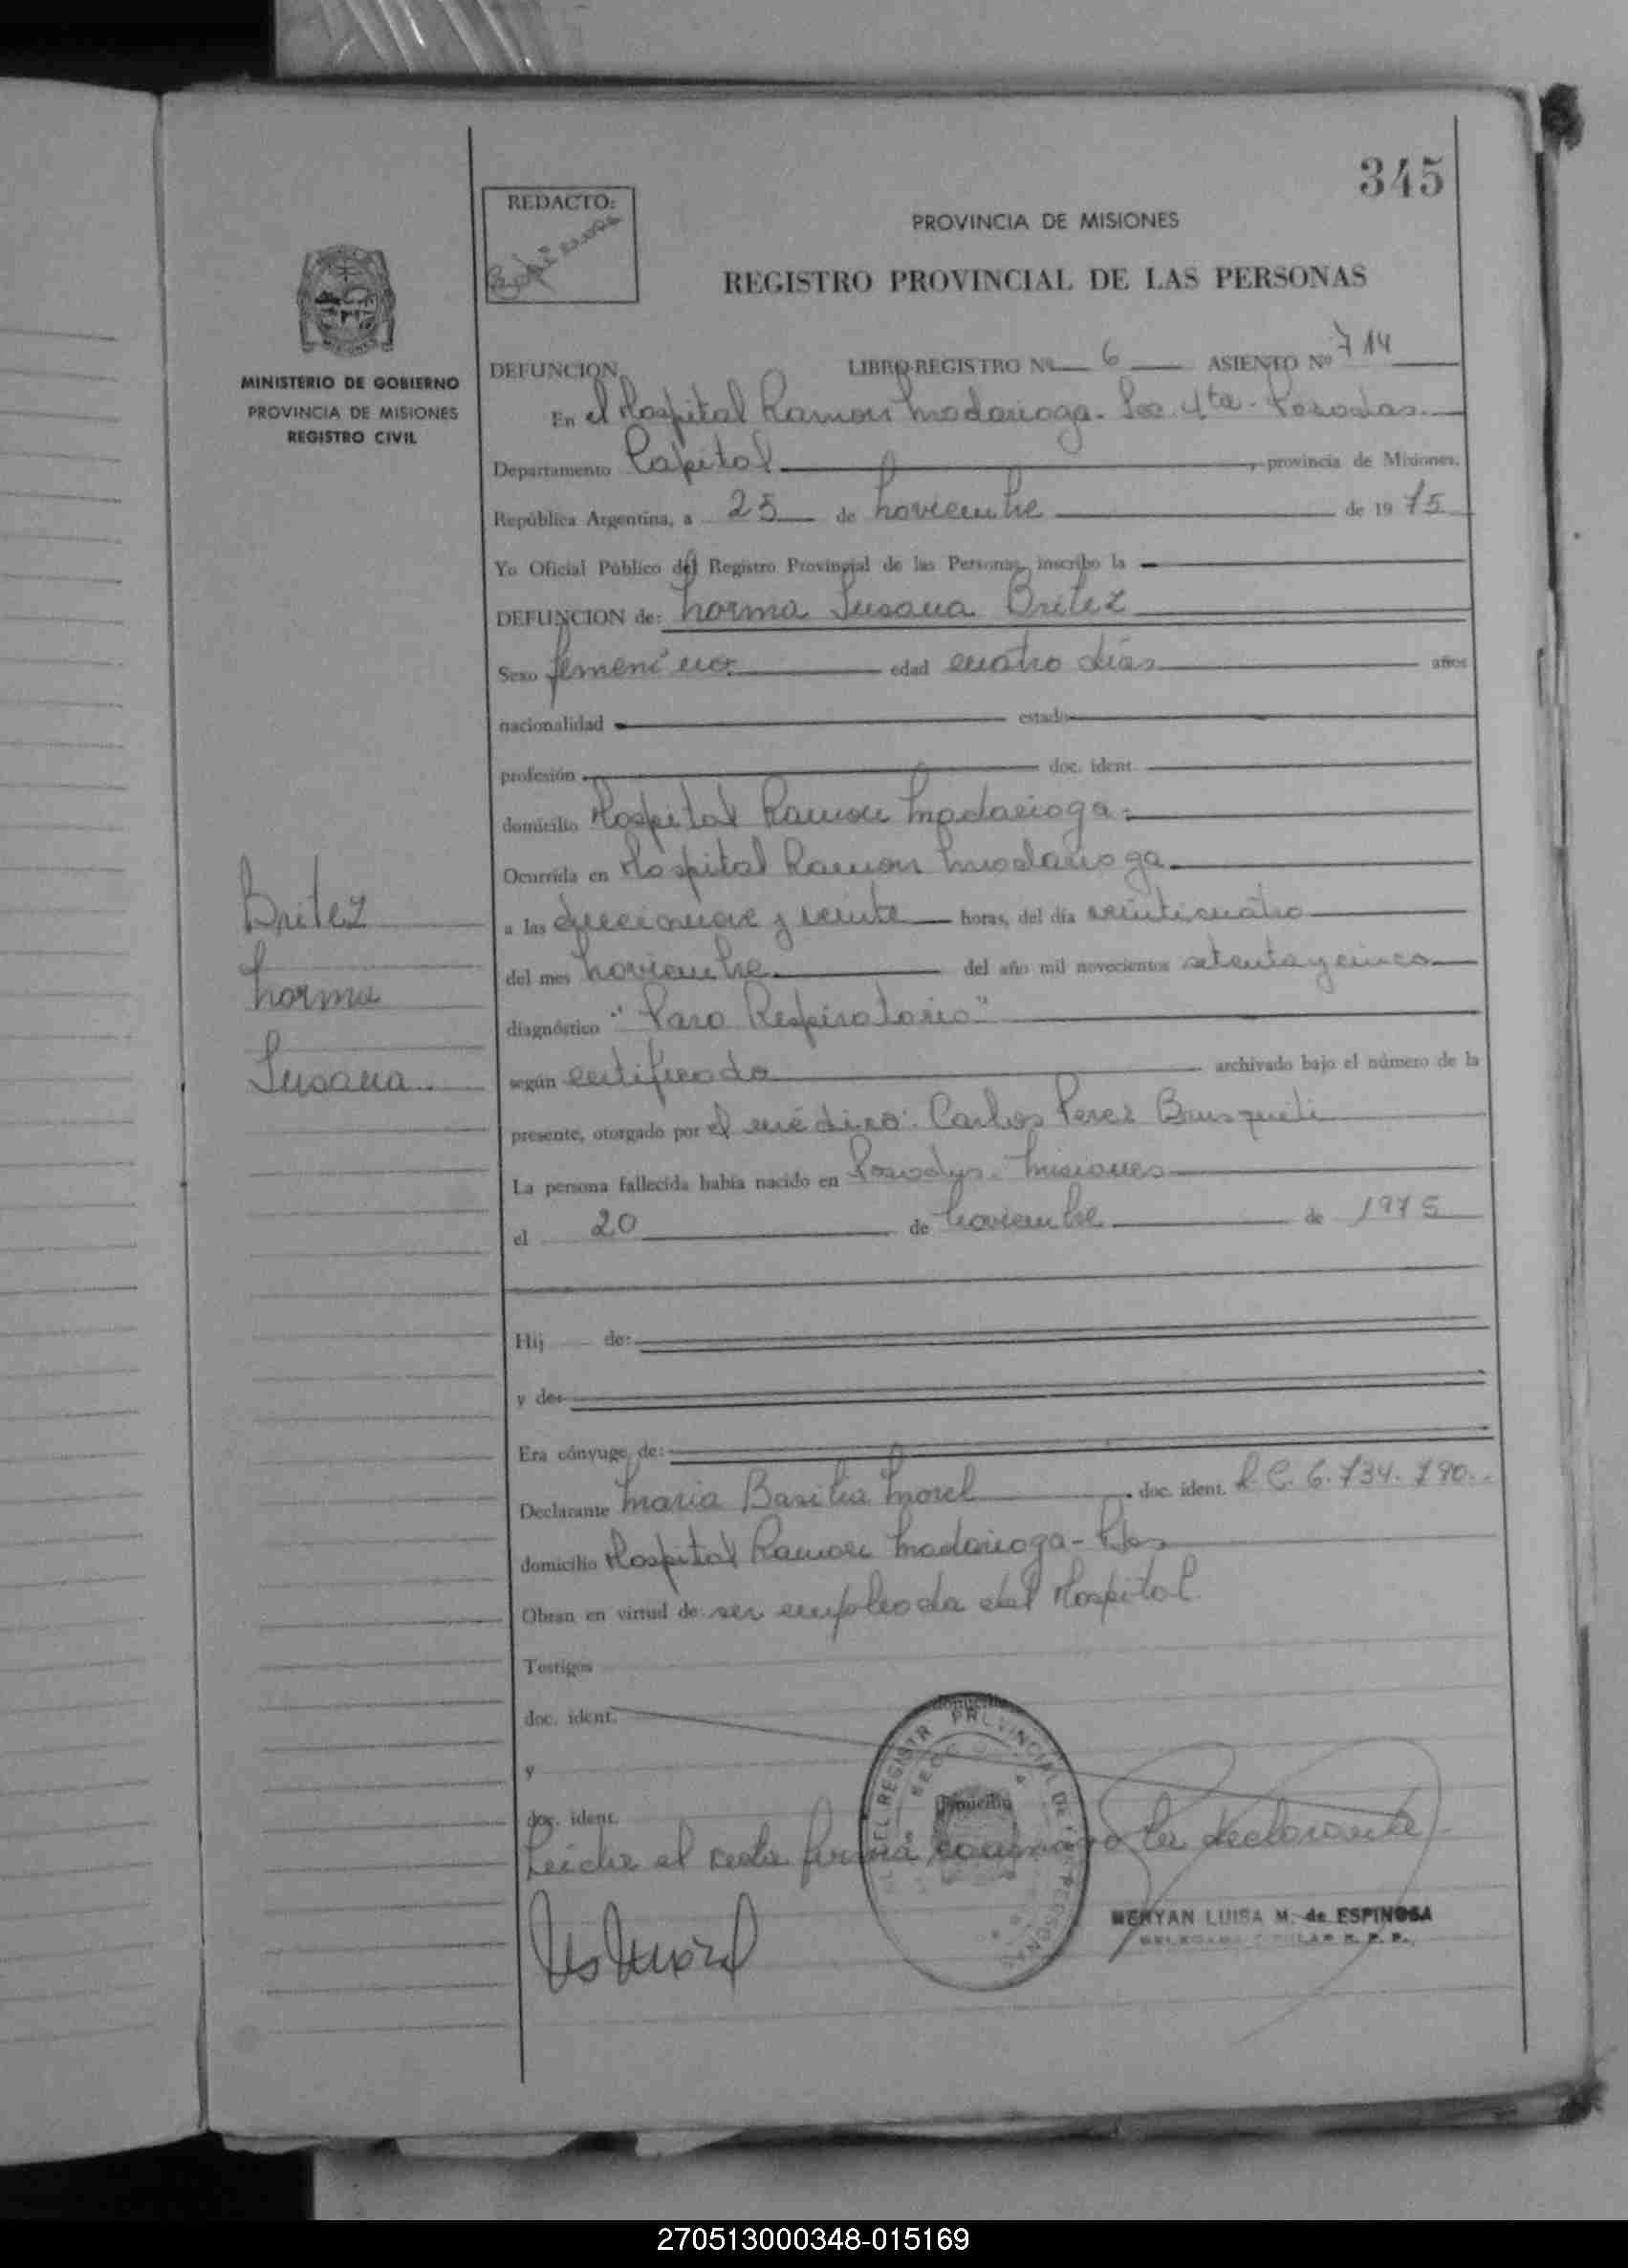 345
REDACTO:
PROVINCIA DE MISIONES
REGISTRO PROVINCIAL DE LAS PERSONAS
MINISTERIO DE GOBIERNO
PROVINCIA DE MISIONES
REGISTRO CIVIL
DEFUNCION LIBRO-REGISTRO Nº 6 ASIENTO Nº 714
En el Hospital Ramon Madariaga - Sec. 4ta - Posadas
Departamento Capital, provincia de Misiones,
República Argentina, a 25 de Noviembre de 1975
Yo Oficial Público del Registro Provincial de las Personas, inscribo la
DEFUNCION de: Norma Susana Britez
Sexo femenino edad cuatro dias años
nacionalidad estado
profesión doc. ident.
domicilio Hospital Ramon Madariaga
Ocurrida en Hospital Ramon Madariaga
a las diecinueve y veinte horas, del día veinticuatro
del mes Noviembre del año mil novecientos setenta y cinco
diagnóstico "Paro Respiratorio"
según certificado archivado bajo el número de la
presente, otorgado por el médico: Carlos Perez
La persona fallecida había nacido en Posadas - Misiones
el 20 de Noviembre de 1975
Britez
Norma
Susana
Hij de:
y de:
Era cónyuge de:
Declarante Maria Basilia Morel doc. ident. L.C. 6.734.790
domicilio Hospital Ramon Madariaga - Pdas
Obran en virtud de ser empleada del Hospital
Testigos
doc. ident. domicilio
y
doc. ident. domicilio
Leida el acta firma conmigo la declarante
MERYAN LUISA M. de ESPINOSA
270513000348-015169